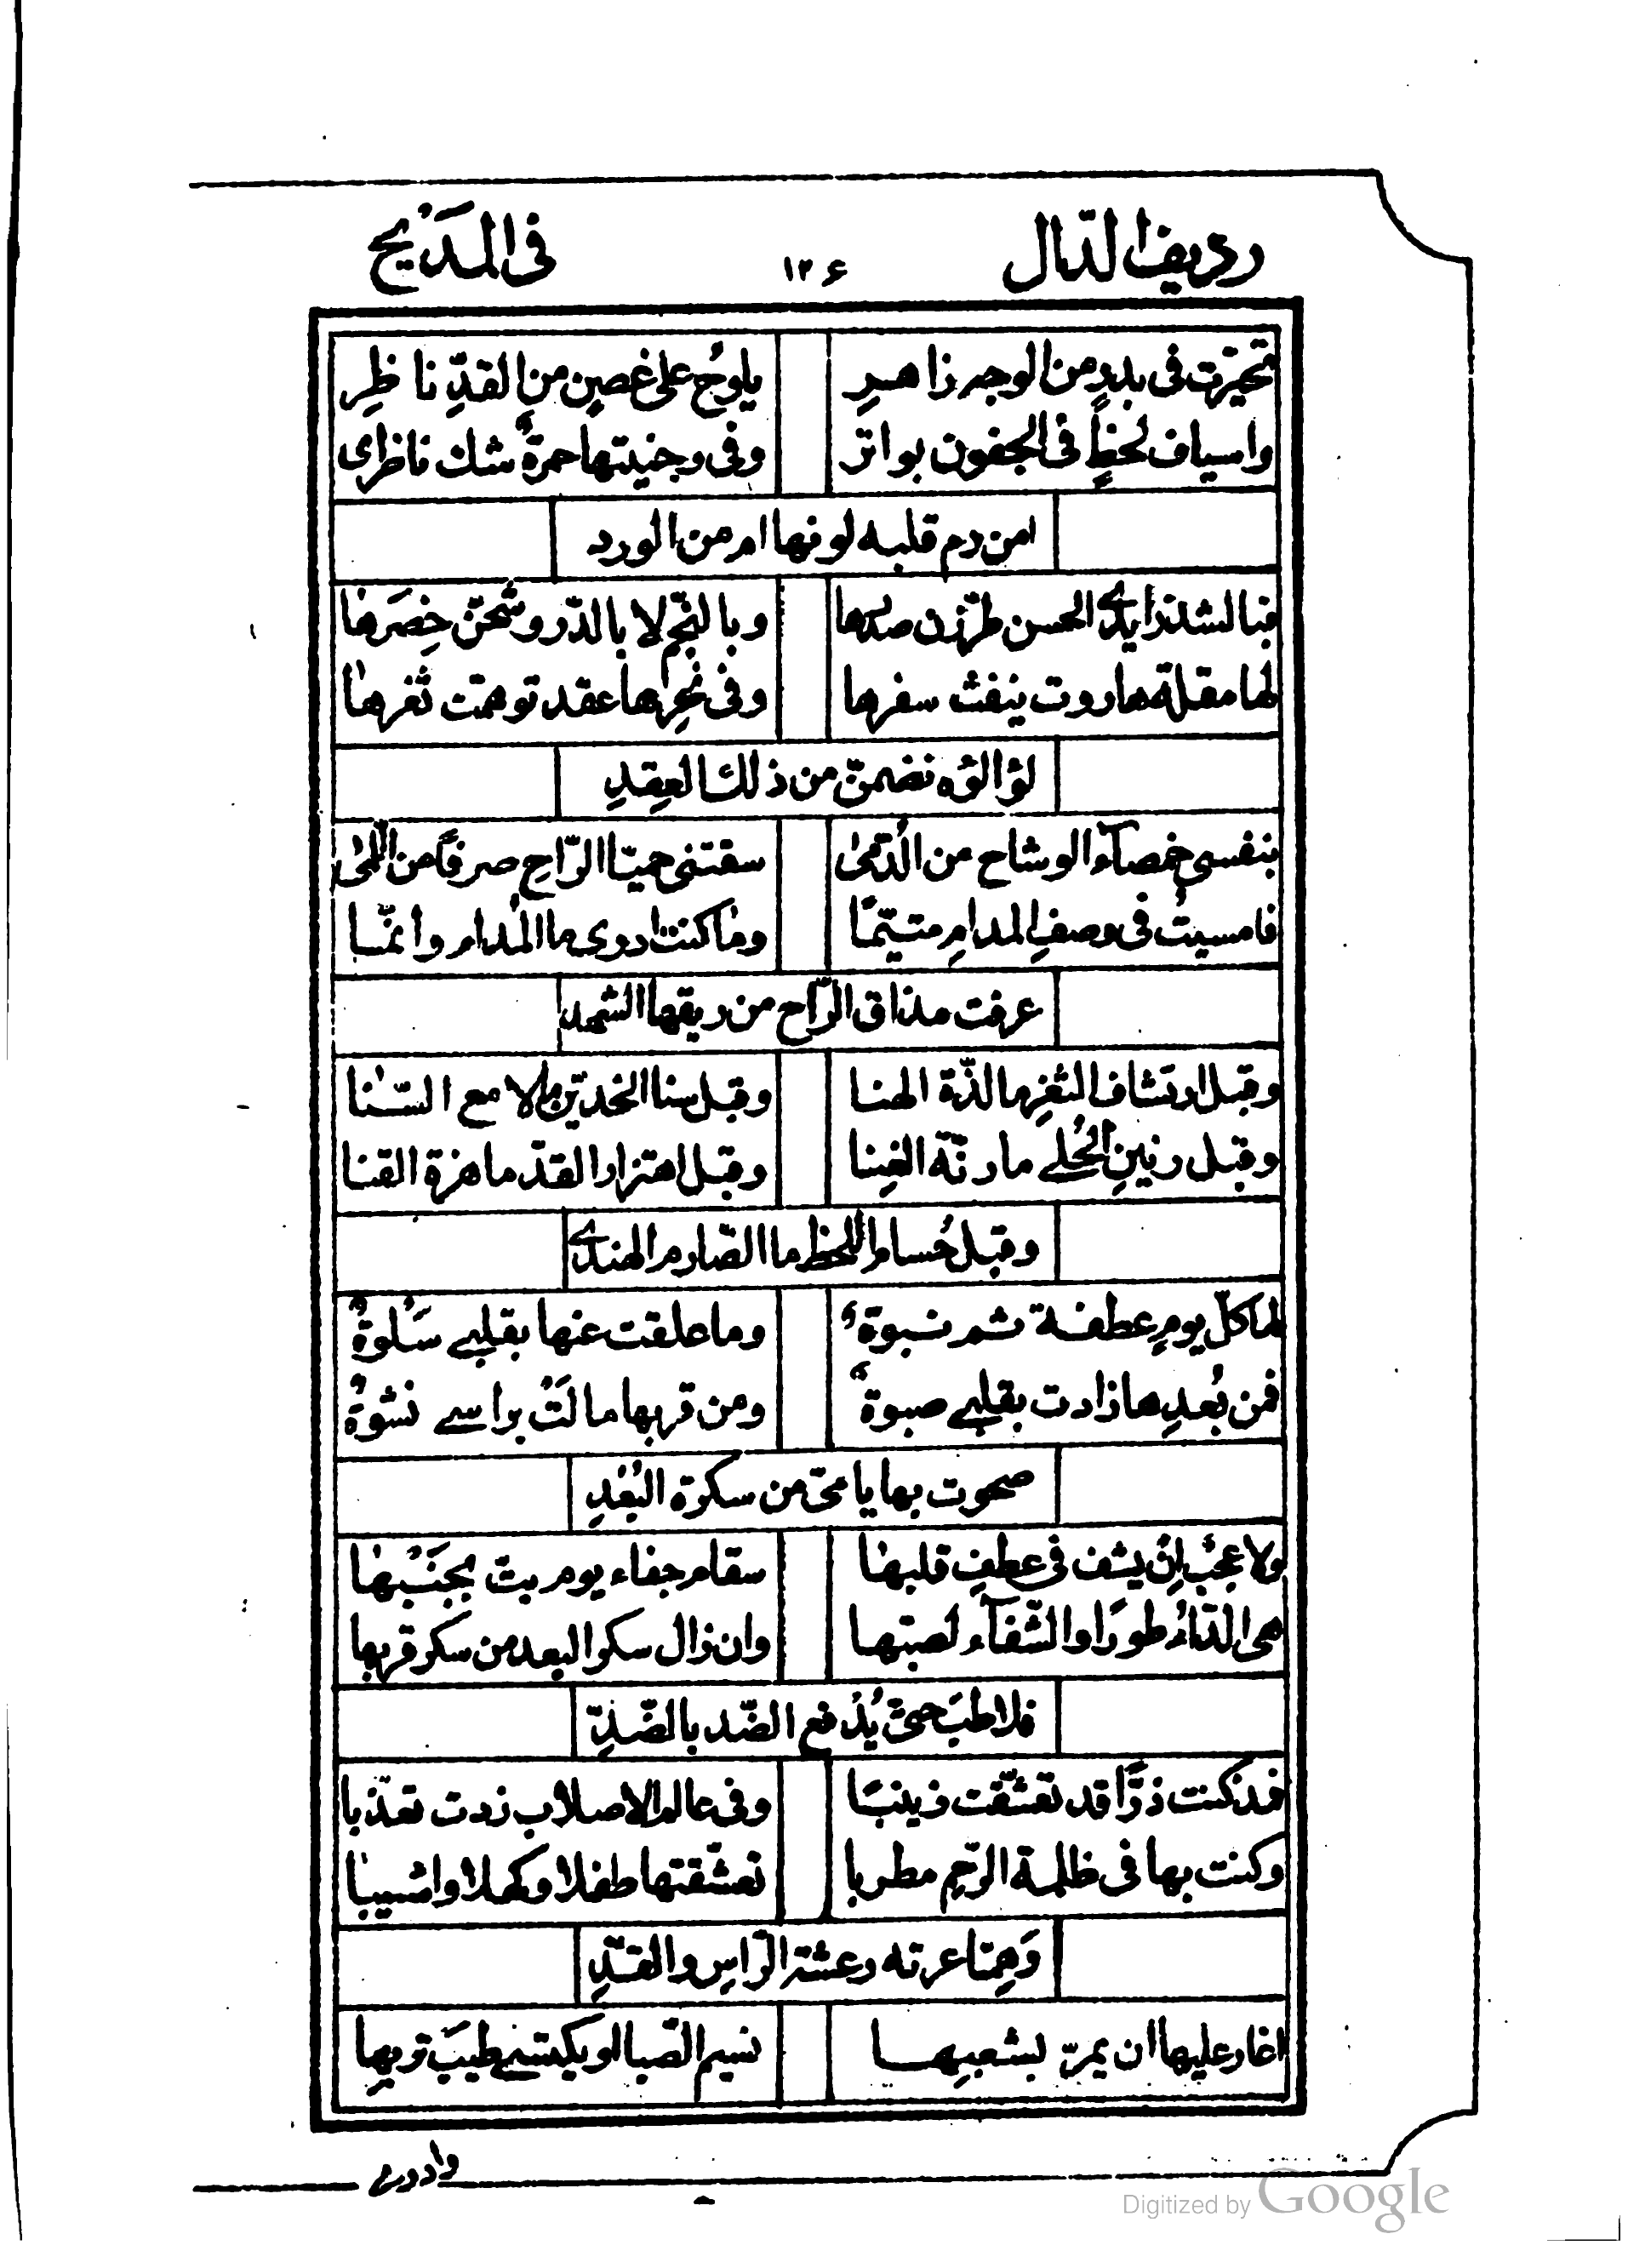 رديف الدّال ١٣۶ فى المَديْح
تحيّرت فى بدرٍ من الوجه زاهرِ يلوحُ على غصنٍ من القدِّ ناظِرِ
واسياف لحظٍ فى الجفون بواتر وفى وجنيتها حمرةٌ شك ناظراى
امن دم قلبه لونها ام من الورد
لها مقلة هاروت ينفث سفرها وفى نحرِها عقد توهمّت ثغرهٰا
لؤالؤه نضمنّ من ذلك العِقِدِ
بنفسى خمصآء الوشاح من الدُّمىٰ سقتنى حميّا الرّاحِ صرفاً من اللمىٰ
فامسيتُ فى وصفِ المدامِ متيّمًا ومٰا كنت ادرى ما المُدام وانمّا
عرفت مذاق الرّاح من ريقها الشهد
وقبل ارتشاف الثغرِ ما لذّة الهنا وقبل سنا الخدّين ما لامع السّنٰا
وقبل رنينِ الحُلے ما رنّة الغِنا وقبل اهتزاز القدّ ما هزة القنا
وقبل حُسام اللحظ ما الصّارم الهندے
لها كلّ يومٍ عطفة ثم نبوةٌ وما علقت عنها بقلبے سَلوةٌ
فمن بُعدِها زادت بقلبے صبوةٌ ومن قربها مالَتْ براسے نشوةٌ
صحوت بها يا مىّ من سكرة البُعْدِ
ولا عجبٌ اِن يشف فى عطفِ قلبهٰا سقام جفاء يوم بتّ بجَنْبهٰا
هى الدّاءُ طورًا والشّفآء لصبّها وان زال سكر البعد من سكر قربها
فلا طبَ حتىّ يُدْفع الضّد بالضّدِّ
فمذ كنت ذرًّا قد تعشّقت زينبًا وفى عالم الاصلاب زدت تعذّبا
وكنت بها فى ظلمة الرّحم مطربا تعشّقتها طفلا وكهلا واشيبٰا
وَهِمّا عرته رعشة الرّاسِ والقدّ
اغار عليها ان يمرّ بشعبِهــا نسيم الصّبا او يكتسى طيبَ تربِها
Digitized by Google